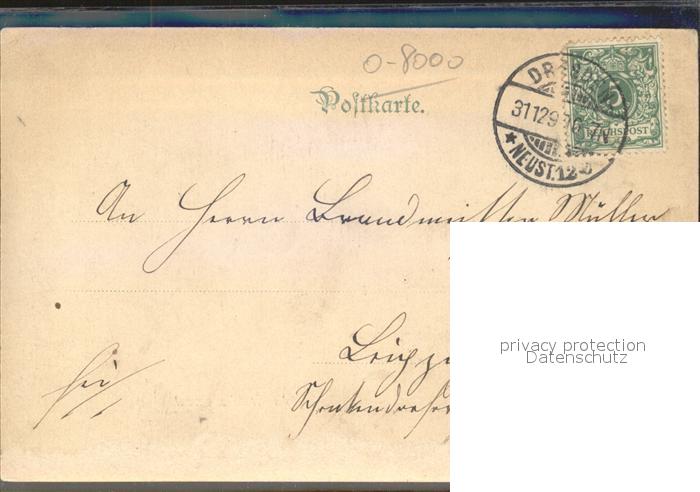 0-8000
Postkarte.
DRESDEN
31 12 9
7-8N
* NEUST. 12
REICHSPOST
An Herrn Brandmeister Müller
Leipzi
frei
privacy protection
Datenschutz